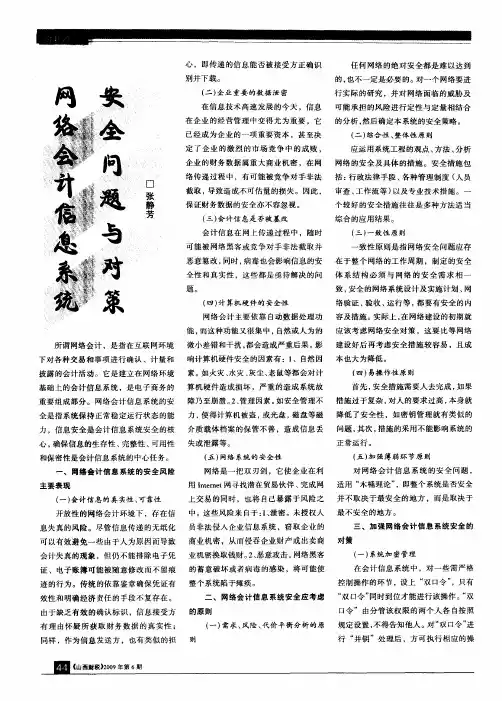 网络会计信息系统
安全问题与对策
□张静芳
所谓网络会计，是指在互联网环境
下对各种交易和事项进行确认、计量和
披露的会计活动。它是建立在网络环境
基础上的会计信息系统，是电子商务的
重要组成部分。网络会计信息系统的安
全是指系统保持正常稳定运行状态的能
力，信息安全是会计信息系统安全的核
心，确保信息的生存性、完整性、可用性
和保密性是会计信息系统的中心任务。
一、网络会计信息系统的安全风险
主要表现
(一)会计信息的真实性、可靠性
开放性的网络会计环境下，存在信
息失真的风险。尽管信息传递的无纸化
可以有效避免一些由于人为原因而导致
会计失真的现象，但仍不能排除电子凭
证、电子账簿可能被随意修改而不留痕
迹的行为。传统的依靠鉴章确保凭证有
效性和明确经济责任的手段不复存在。
由于缺乏有效的确认标识，信息接受方
有理由怀疑所获取财务数据的真实性；
同样，作为信息发送方，也有类似的担
心，即传递的信息能否被接受方正确识
别并下载。
(二)企业重要的数据泄密
在信息技术高速发展的今天，信息
在企业的经营管理中变得尤为重要，它
已经成为企业的一项重要资本，甚至决
定了企业的激烈的市场竞争中的成败，
企业的财务数据属重大商业机密，在网
络传递过程中，有可能被竞争对手非法
截取，导致造成不可估量的损失。因此，
保证财务数据的安全亦不容忽视。
(三)会计信息是否被篡改
会计信息在网上传递过程中，随时
可能被网络黑客或竞争对手非法截取并
恶意篡改，同时，病毒也会影响信息的安
全性和真实性，这些都是亟待解决的问
题。
(四)计算机硬件的安全性
网络会计主要依靠自动数据处理功
能，而这种功能又很集中，自然或人为的
微小差错和干扰，都会造成严重后果。影
响计算机硬件安全的因素有：1、自然因
素。如火灾、水灾、灰尘、老鼠等都会对计
算机硬件造成损坏，严重的造成系统故
障乃至崩溃。2.管理因素。如安全管理不
力，使得计算机被盗，或光盘，磁盘等磁
介质载体档案的保管不善，造成信息丢
失或泄露等。
(五)网络系统的安全性
网络是一把双刃剑，它使企业在利
用Internet网寻找潜在贸易伙伴、完成网
上交易的同时，也将自己暴露于风险之
中，这些风险来自于：1、泄密。未授权人
员非法侵人企业信息系统，窃取企业的
商业机密，从而侵吞企业财产或出卖商
业机密换取钱财。2、恶意攻击。网络黑客
的蓄意破坏或者病毒的感染，将可能使
整个系统陷于瘫痪。
二、网络会计信息系统安全应考虑
的原则
(一)需求、风险、代价平衡分析的原
则
任何网络的绝对安全都是难以达到
的，也不一定是必要的。对一个网络要进
行实际的研究，并对网络面临的威胁及
可能承担的风险进行定性与定量相结合
的分析，然后确定本系统的安全策略。
(二)综合性、整体性原则
应运用系统工程的观点、方法，分析
网络的安全及具体的措施。安全措施包
括：行政法律手段、各种管理制度(人员
审查、工作流等)以及专业技术措施。一
个较好的安全措施往往是多种方法适当
综合的应用结果。
(三)一致性原则
一致性原则是指网络安全问题应存
在于整个网络的工作周期，制定的安全
体系结构必须与网络的安全需求相一
致，安全的网络系统设计及实施计划、网
络验证、验收、运行等，都要有安全的内
容及措施。实际上，在网络建设的初期就
应该考虑网络安全对策，这要比等网络
建设好后再考虑安全措施较容易，且成
本也大为降低。
(四)易操作性原则
首先，安全措施需要人去完成，如果
措施过于复杂，对人的要求过高，本身就
降低了安全性，如密钥管理就有类似的
问题，其次，措施的采用不能影响系统的
正常运行。
(五)加强薄弱环节原则
对网络会计信息系统的安全问题，
适用“木桶理论”，即整个系统是否安全
并不取决于最安全的地方，而是取决于
最不安全的地方。
三、加强网络会计信息系统安全的
对策
(一)系统加密管理
在会计信息系统中，对一些需严格
控制操作的环节，设上“双口令”，只有
“双口令”同时到位才能进行该操作。“双
口令”由分管该权限的两个人各自按照
规定设置，不得告知他人。对“双口令”进
行“并钥”处理后，方可执行相应的操
44 《山西财税》2009年第6期